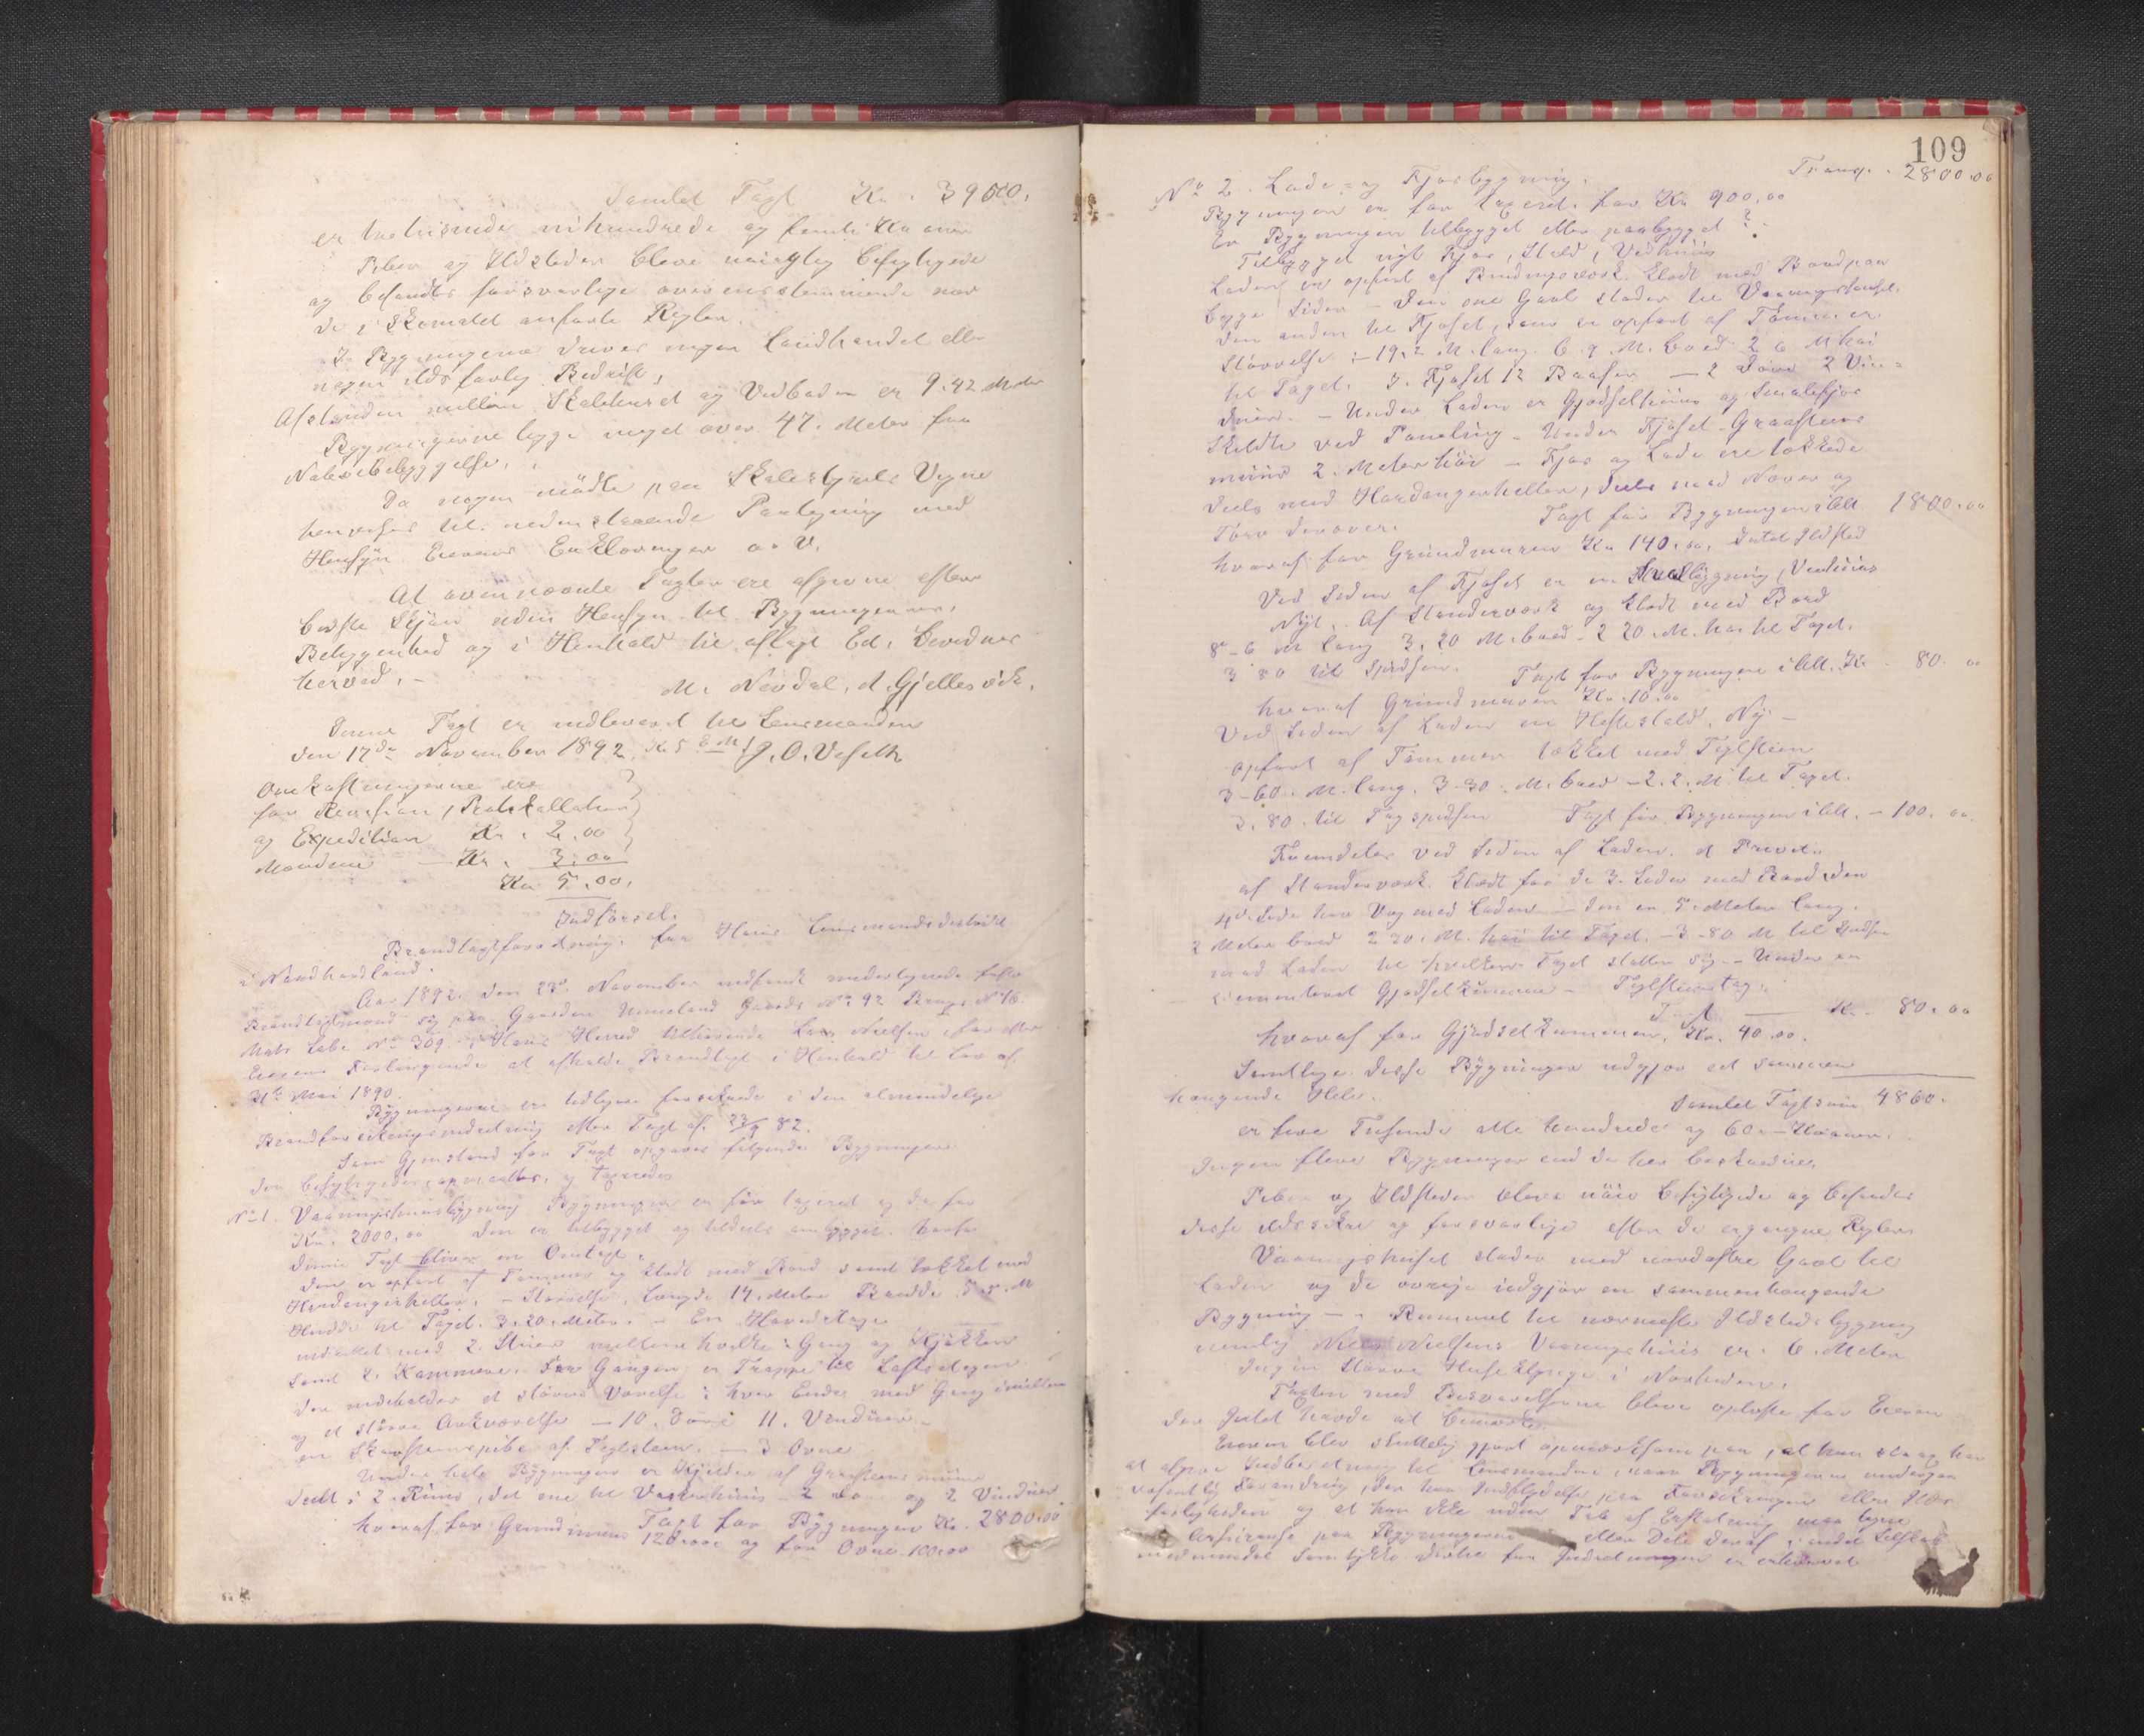 Samlet Taxt Kr. 3950,
er tretusinde nihundrede og femti Kroner
Piber og Ildsteder bleve nøiagtig besigtigede
og befandtes forsvarlige overensstemmende med
de i Skemaet anførte Regler.
I Bygningerne drives ingen Landhandel eller
nogen ildsfarlig Bedrift,
Afstanden mellem Skolehuset og Vedboden er 9.42 Meter
Bygningerne ligge meget over 47. Meter fra
Nabobebyggelse.
Da ingen mødte paa Skolestyrets Vegne
henvises til nedenstaaende Paategning med
Hensyn Eierens Erklæringer o. s. v.
At ovennævnte Taxter ere afgivne efter
bedste Skjøn uden Hensyn til Bygningernes
Beliggenhed og i Henhold til aflagt Ed, bevidnes
herved. –
M. Nævdal, A. Gjellesvik,
Denne Taxt er indleveret til Lensmanden
den 17de November 1892, Kl 5 E M / J. O. Veseth
Omkostningerne ere
for Revision, Protokollation
og Expedition Kr. 2,00
Mændene – Kr. 3,00
Kr 5,00.
Indførsel.
Brandtaxtforretning fra Haus Lensmandsdistrikt
i Nordhordland.
Aar 1892. den 22de November indfandt undertegnede faste
Brandtaxtmænd sig paa Gaarden Unneland Gaards No 92 Brugs No 16.
Matr. Løbe No 209. i Haus Herred tilhørende Lars Nielsen for efter
Eierens Forlangende at afholde Brandtaxt i Henhold til Lov af
31te Mai 1890.
Bygningerne er tidligere forsikrede i den almindelige
Brandforsikringsindretning efter Taxt af 23/9 82.
Som Gjenstand for Taxt opgaves følgende Bygninger
der besigtigedes, opmaaltes, og taxeredes
No 1. Vaaningshuusbygning Bygningen er før taxeret og da for
Kr. 2000,00 Den er tilbygget og tildeels ombygget hvorfor
denne Taxt bliver en Omtaxt.
Den er opført af Tømmer og klædt med Bord samt tækket med
Hardangerheller. – Størrelse, Længde 14. Meter Bredde 5 M
Høide til Taget. 3,20. Meter. – En Hovedetage
indrettet med 2. Stuer mellem hvilke: Gang og Kjøkken
samt 2. Kammere. Fra Gangen er Trappe til Loftsetagen
der indeholder et større Værelse i hver Ende, med Gang imellem
og et større Arkværelse – 10. Døre 11. Vinduer –
en Skorstenspibe af Teglsteen. – 3 Ovne
Under hele Bygningen er Kjelder af Graasteens muur
deelt i 2. Rum, det ene til Vaskehuus – 2 Døre og 2 Vinduer
Taxt for Bygningen Kr. 2800,00
hvoraf for Grundmuren 120,00 og for Ovne 100,00
109
Transp. . 2800.00
No 2. Lade- og Fjøsbygning.
Bygningen er før taxeret for Kr 900,00
Er Bygningen tilbygget eller paabygget?
Tilbygget nyt Fjøs, Stald, Vedhuus
Laden er opført af Bindingsværk klædt med Bord paa
begge Sider – Den ene Gavl støder til Vaaningshuset.
den anden til Fjøset, som er opført af Tømmer
Størrelse: – 19,2 M. lang. 6.9. M. bred 2 6 M høi
til Taget. I Fjøset 12 Baaser – 2 Døre 2 Vin=
duer. – Under Laden er Gjødselhuus og Smalefjøs
Skeldte ved Paneling – Under Fjøset Graasteens
muur 2. Meter høi – Fjøs og Lade ere tækkede
deels med Hardangerheller, deels med Næver og
Torv derover. Taxt for Bygningen i Alt 1800.00
hvoraf for Grundmuren Kr 140.00, Intet Ildsted
Ved Siden af Fjøset er en Skuelbygning, Vedhuus
Nyt. Af Standerværk og klædt med Bord
8–6 M lang 3,20 M. bred – 2 20. M. høi til Taget.
3 80 til Spidsen. Taxt for Bygningen i Alt. Kr. 80. 00
hvoraf Grundmuren Kr. 10.00
Ved Siden af Laden en Hestestald, Ny –
opført af Tømmer tækket med Teglsteen
3–60. M. lang. 3–30. M. bred – 2.2. M. til Taget.
3.80. til Tagspidsen Taxt for Bygningen i Alt. – 100. 00
Fremdeles ved Siden af Laden. et Privet
af Standerværk. Klædt paa de 3. Sider med Bord, den
4de Side har Væg med Laden – Den er 5. Meter lang.
2 Meter bred 2 20. M. høi til Taget. – 3–80 M til Spidsen
mod Laden til hvilken Taget støtter sig. – Under en
sementeret Gjødselkumme – Teglsteenstag.
Taxt – Kr. 80.00
hvoraf for Gjødselkummen, Kr. 40.00.
Samtlige disse Bygninger udgjør et sammen
hængende Hele.
Samlet Taxtsum 4860.
er fire Tusende otte hundrede og 60. – Kroner.
Ingen flere Bygninger end de her beskrevne.
Piber og Ildsteder bleve nøie besigtigede og befandtes
disse ildssikre og forsvarlige efter de ergangne Regler
Vaaningshuset støder med nordøstre Gavl til
Laden og de øvrige udgjør en sammenhængende
Bygning – . Rummet til nærmeste Ildstedsbygning
nemlig Niels Nielsens Vaaningshuus er. 6. Meter
Ingen større Huseklynge i Nærheden.
Taxten med Besvarelserne bleve oplæste for Eieren
der Intet havde at bemærke.
Eieren blev skriftelig gjort opmærksom paa, at han strax har
at afgive Indberetning til Lensmanden, naar Bygningerne undergaa
væsentlig Forandring, der har Indflydelse paa Forsikringen eller Ilds
farligheden og at han ikke uden Tab af Erstatning maa tegne
Assurance paa Bygningerne eller Dele deraf i andet Selskab
medmindre Samtykke dertil fra Indretningen er erhvervet